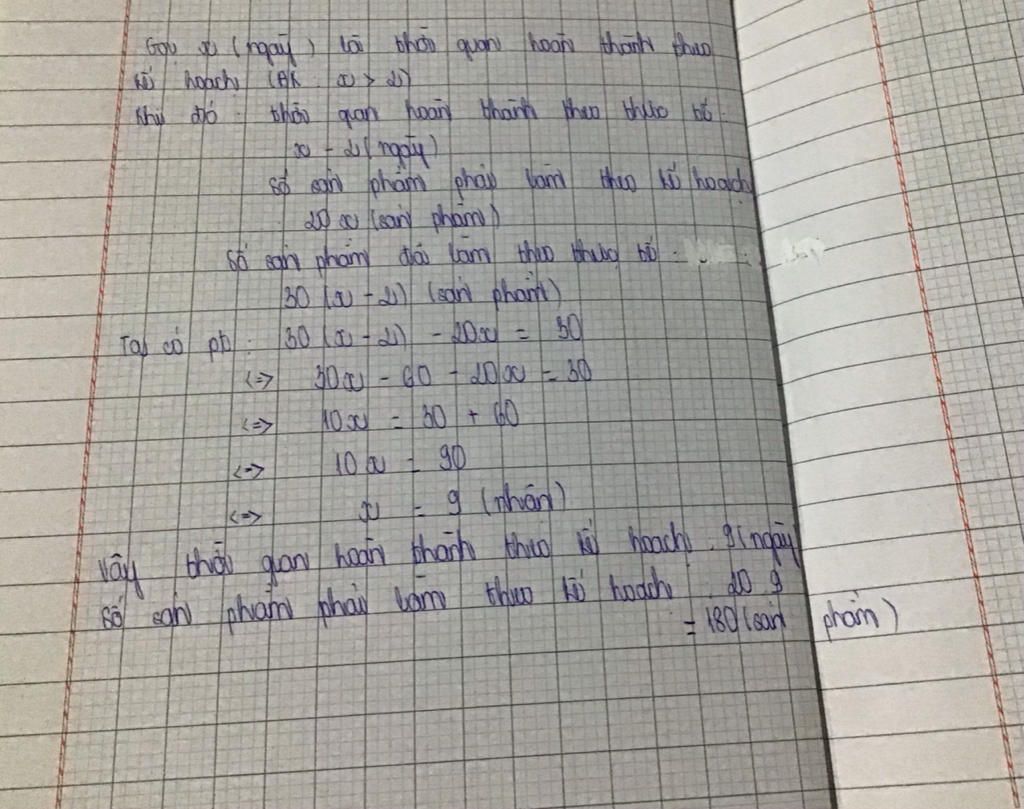 Gọi x (ngày) là thời gian hoàn thành theo
kế hoạch (ĐK: x > 2)
Khi đó: thời gian hoàn thành theo thực tế:
x - 2 (ngày)
số sản phẩm phải làm theo kế hoạch
20 x (sản phẩm)
Số sản phẩm đã làm theo thực tế:
30 (x - 2) (sản phẩm)
Ta có pt: 30 (x - 2) - 20x = 30
<=> 30x - 60 - 20x = 30
<=> 10x = 30 + 60
<=> 10x = 90
<=> x = 9 (nhận)
Vậy thời gian hoàn thành theo kế hoạch: 9 (ngày)
Số sản phẩm phải làm theo kế hoạch: 20.9
= 180 (sản phẩm)